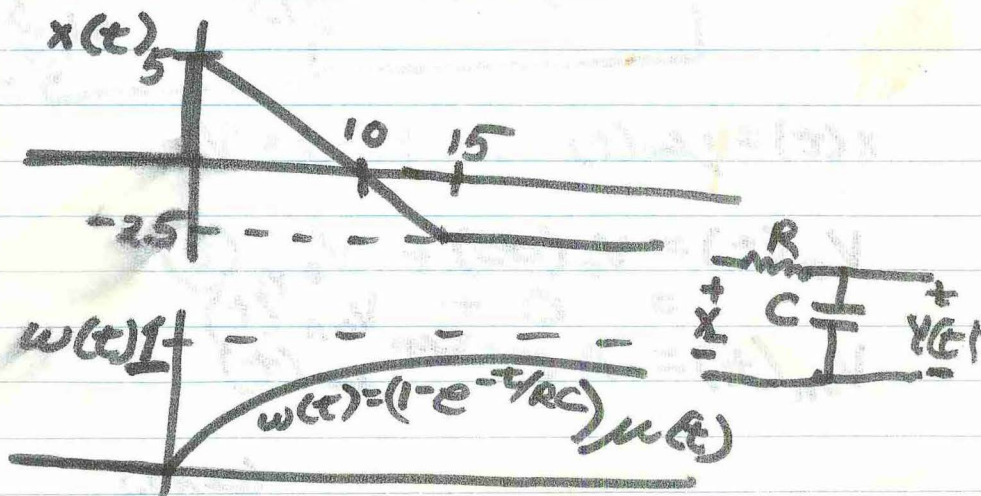 x(t)
5
10
15
-25
R
+
X
-
C
+
Y(t)
-
w(t) 1
w(t)=(1-e^-t/RC)μ(t)